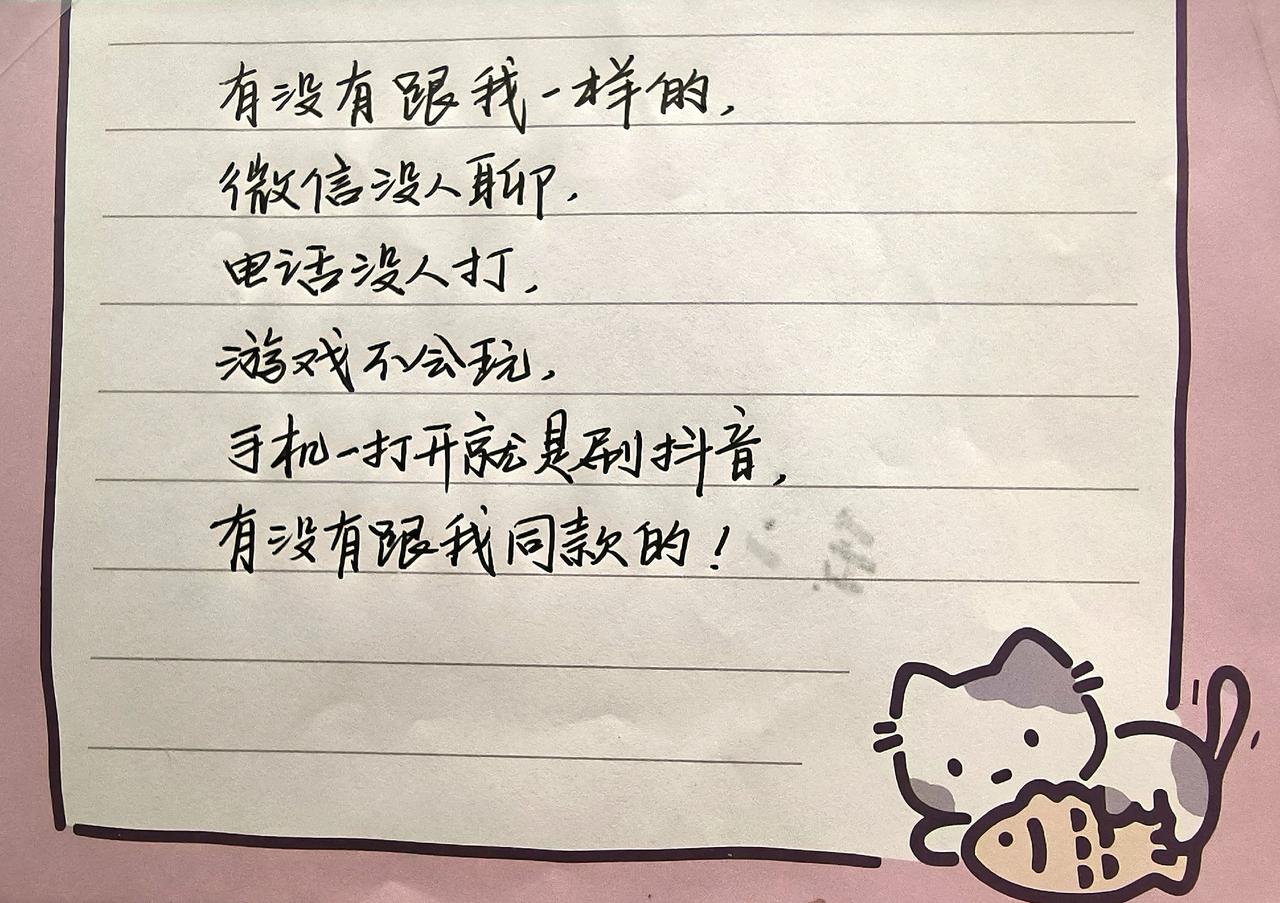 有没有跟我一样的，
微信没人聊，
电话没人打，
游戏不会玩，
手机一打开就是刷抖音，
有没有跟我同款的！